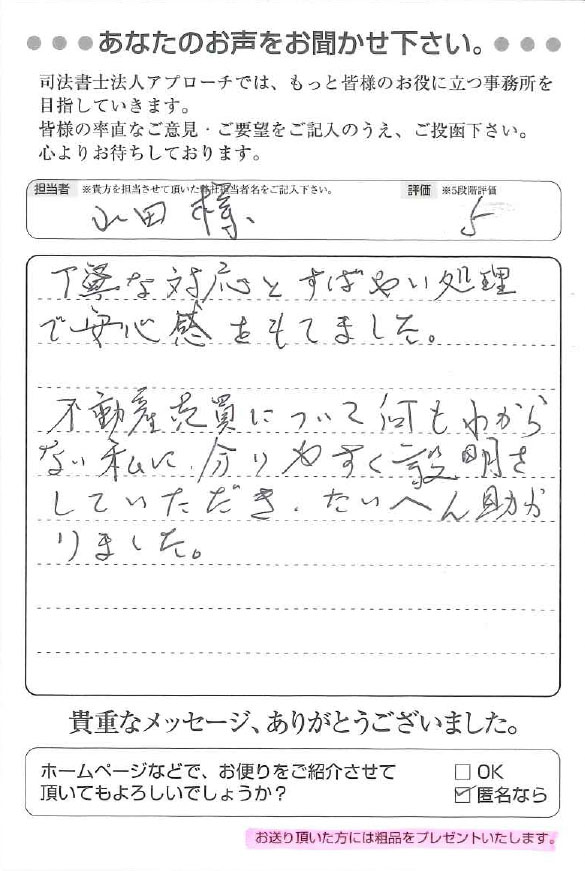 ●●●あなたのお声をお聞かせ下さい。●●●
司法書士法人アプローチでは、もっと皆様のお役に立つ事務所を
目指していきます。
皆様の率直なご意見・ご要望をご記入のうえ、ご投函下さい。
心よりお待ちしております。
担当者 ※貴方を担当させて頂いた弊社担当者名をご記入下さい。 評価 ※5段階評価
山田様 5
丁寧な対応とすばやい処理
で安心感をもてました。
不動産売買について何もわから
ない私に、分りやすく説明を
していただき、たいへん助か
りました。
貴重なメッセージ、ありがとうございました。
ホームページなどで、お便りをご紹介させて
頂いてもよろしいでしょうか?
□ OK
☑ 匿名なら
お送り頂いた方には粗品をプレゼントいたします。